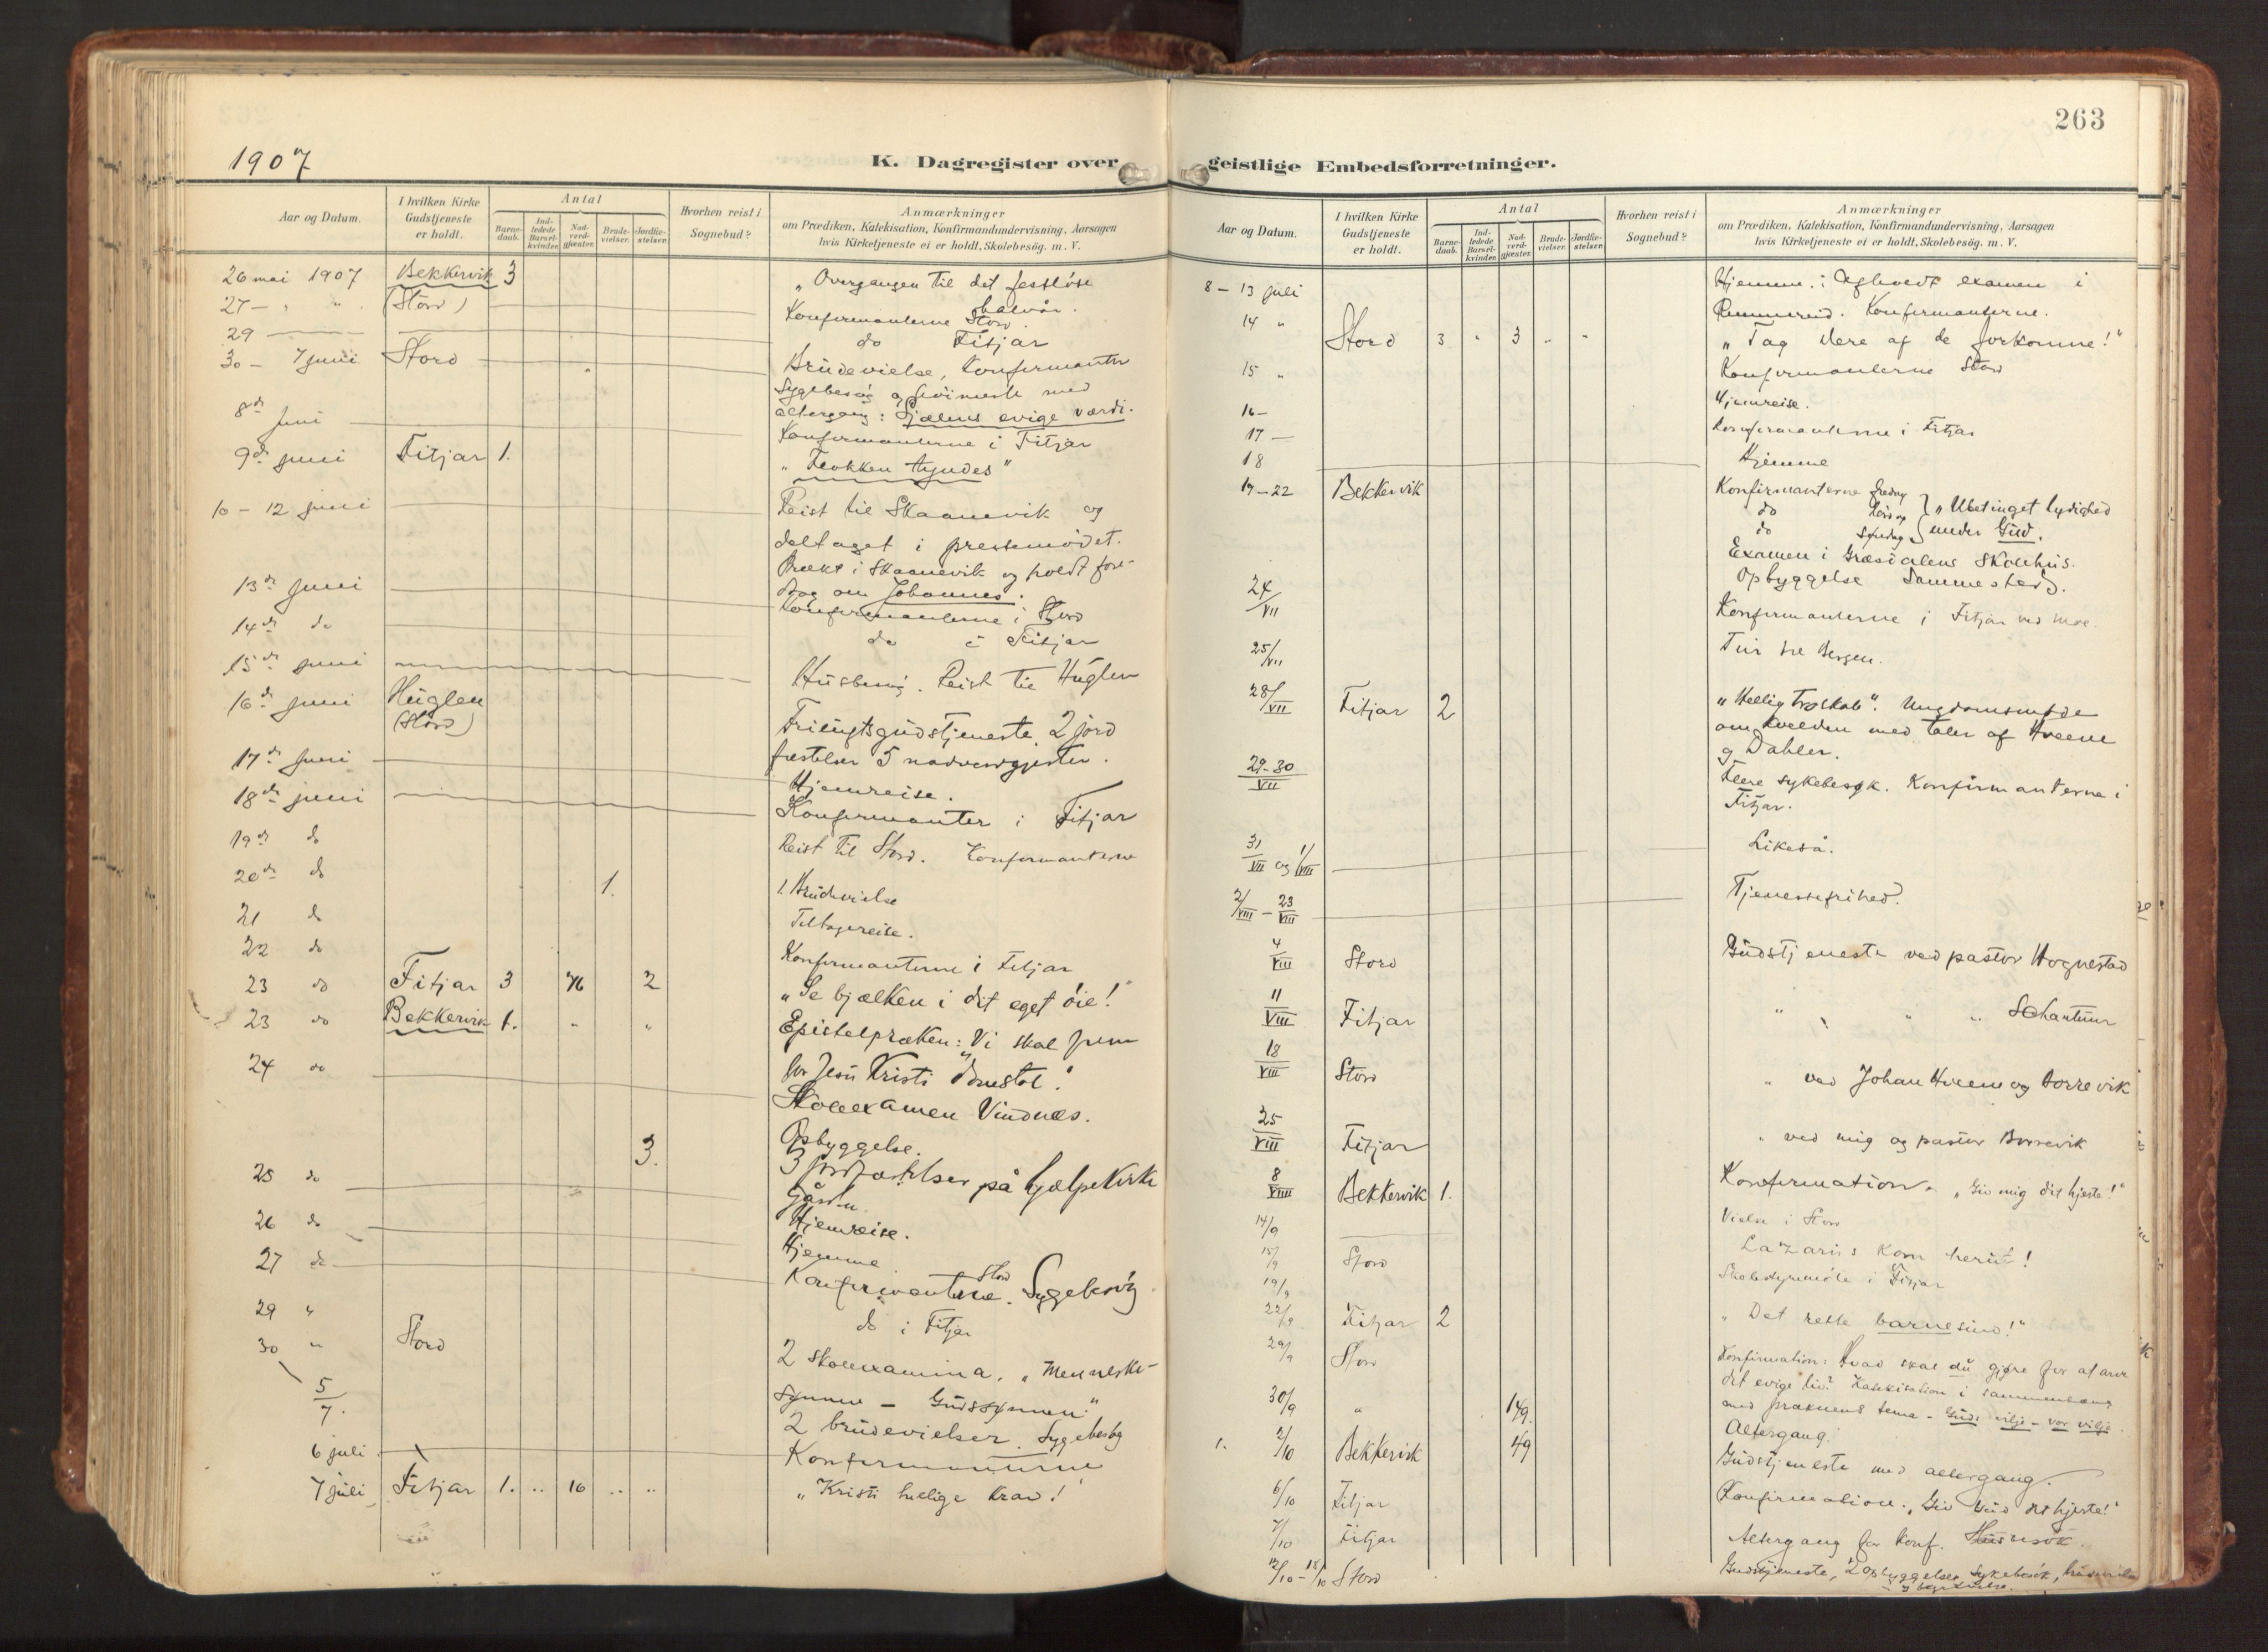 1907
K. Dagregister over
Aar og Datum.
I hvilken Kirke Gudstjeneste er holdt.
Antal
Barnedaab.
Indledede Barselkvinder.
Nadverdgjæster.
Brudevielser.
Jordfæstelser.
Hvorhen reist i Sognebud?
Anmærkninger
om Prædiken, Katekisation, Konfirmandundervisning, Aarsagen
hvis Kirketjeneste ei er holdt, Skolebesög. m. V.
26 mai 1907 Bekkervik 3 „Overgangen til det festløse
halvår.
27 - " " (Stord) Konfirmanterne Stord.
29 do Fitjar
30 - 7 juni Stord Brüdevielse, Konfirmanter
Sygebesøg og med
altergang: Sjælens evige værdi.
8de juni Konfirmanterne i Fitjar
9de juni Fitjar 1. „Flokken tyndes"
10 - 12 juni Reist til Skaanevik og
deltaget i prestemødet.
Præket i Skaanevik og holdt fore-
drag om Johannes.
13de juni Konfirmanterne i Stord
14de do do i Fitjar
15de juni Husbesøg. Reist til Huglen
16de juni Huglen
(Stord) Friluftsgudstjeneste. 2 jord
fæstelser 5 nadverdgjester.
17de juni Hjemreise.
18de juni Konfirmanter i Fitjar
19de do Reist til Stord. Konfirmanterne
20de do 1. 1 Brüdevielse
21 do Tilbagereise.
22 do Konfirmanterne i Fitjar
23 do Fitjar 3 46 2 „Se bjælken i dit eget öie!"
23 do Bekkervik 1. " " Epistelpræken: Vi skal frem
for Jesu Kristi domstol!
24 do Skoleexamen Vindnes.
Opbyggelse.
3. 3 jordfæstelser på hjælpekirke
gården.
25 do Hjemreise.
26 do Hjemme
27 do Konfirmanterne Stord. Sygebesög
29 " do i Fitjar
30 " Stord 2 skoleexamina. „Menneske-
synner - Gudssynner"
5/7. 2 brüdevielser. Sygebesög
6 juli Konfirmanterne
7 juli Fitjar 1. .. 16 .. .. „Kristi hellige krav!
263
geistlige Embedsforretninger.
Aar og Datum.
I hvilken Kirke Gudstjeneste er holdt.
Antal
Barnedaab.
Indledede Barselkvinder.
Nadverdgjæster.
Brudevielser.
Jordfæstelser.
Hvorhen reist i Sognebud?
Anmærkninger
om Prædiken, Katekisation, Konfirmandundervisning, Aarsagen
hvis Kirketjeneste ei er holdt, Skolebesög. m. V.
8 - 13 juli Hjemme. Afholdt examen i
Rimmereid. Konfirmanterne.
14 " Stord 3 " 3 " " „Tag Dere af de forkomne!"
15 " Konfirmanterne Stord
16 - Hjemreise.
17 - Konfirmanterne i Fitjar
18 Hjemme
19 - 22 Bekkervik Konfirmanterne fredag
do lørdag „Ubetinget lydighed
do søndag under Gud.
Examen i Græsdalens skolehus.
Opbyggelse sammested.
24/VII Konfirmanterne i Fitjar ved Moe.
25/VII Tür til Bergen.
28/VII Fitjar 2 „Hellig troskab". Ungdomsmøde
om kvelden med taler af Hveem
og Dahler.
29-30/VII Flere sykebesøk. Konfirmanterne i
Fitjar.
31/VII og 1/VIII Likeså.
2/VIII - 23/VIII Tjenestefrihed.
4/VIII Stord Gudstjeneste ved pastor Hognestad
11/VIII Fitjar " " "
18/VIII Stord " ved Johan Hveem og Borrevik
25/VIII Fitjar " ved mig og pastor Borrevik
8/VIIII Bekkervik 1. Konfirmation. „Giv mig dit hjerte!"
14/9 Vielse i Stord
15/9 Stord Lazarus kom herut!
19/9 Skolestyremøte i Fitjar
22/9 Fitjar 2 „Det rette barnesind!"
29/9 Stord Konfirmation: Hvad skal du gjøre for at arve
det evige liv? Katekisation i sammenhæng
med prækenens tema - Guds vilje - vor vilje.
30/9 " 149. Altergang.
1. 2/10 Bekkervik 49 Gudstjeneste med altergang.
6/10 Fitjar Konfirmation. „Giv Gud dit hjerte!"
7/10 Fitjar Altergang for konf. Husbesök.
12/10 - 18/10 Stord Gudstjeneste, 2 opbyggelser, sykebesök,